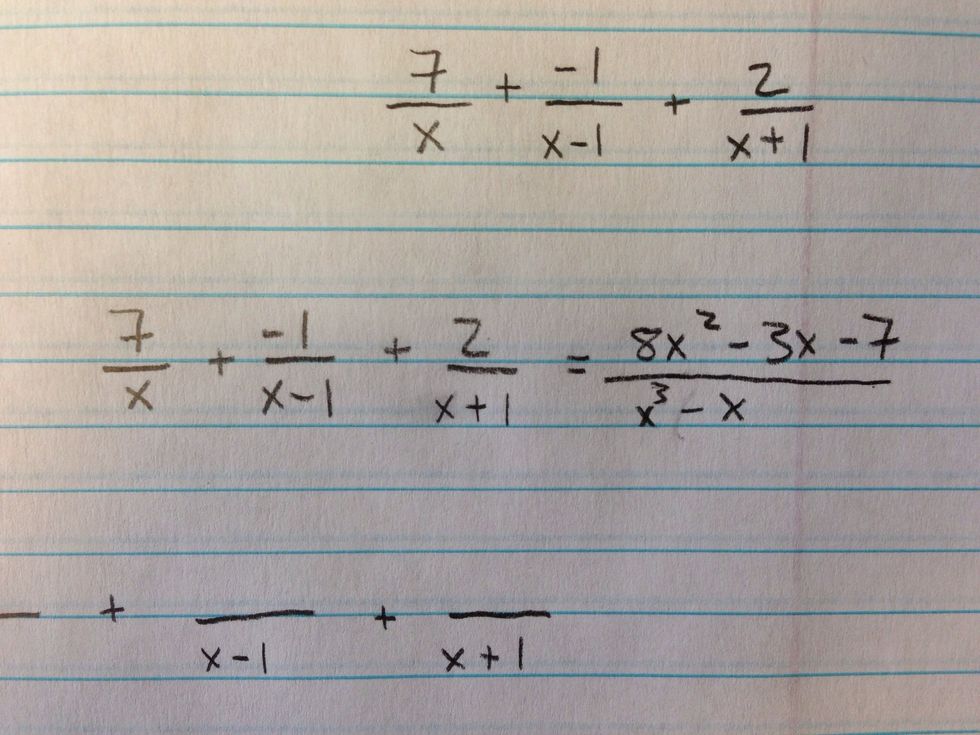 7/x + -1/x-1 + 2/x+1
7/x + -1/x-1 + 2/x+1 = 8x² - 3x - 7/x³ - x
+ /x-1 + /x+1